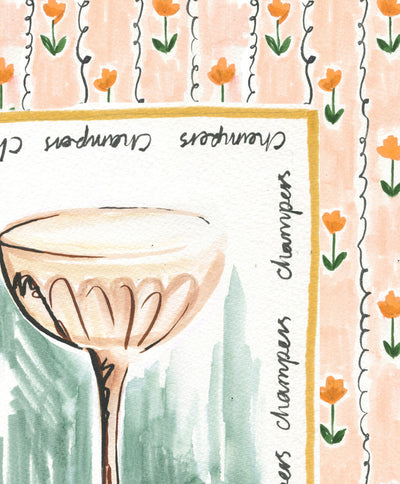 champers champers champers ch
ers champers champers